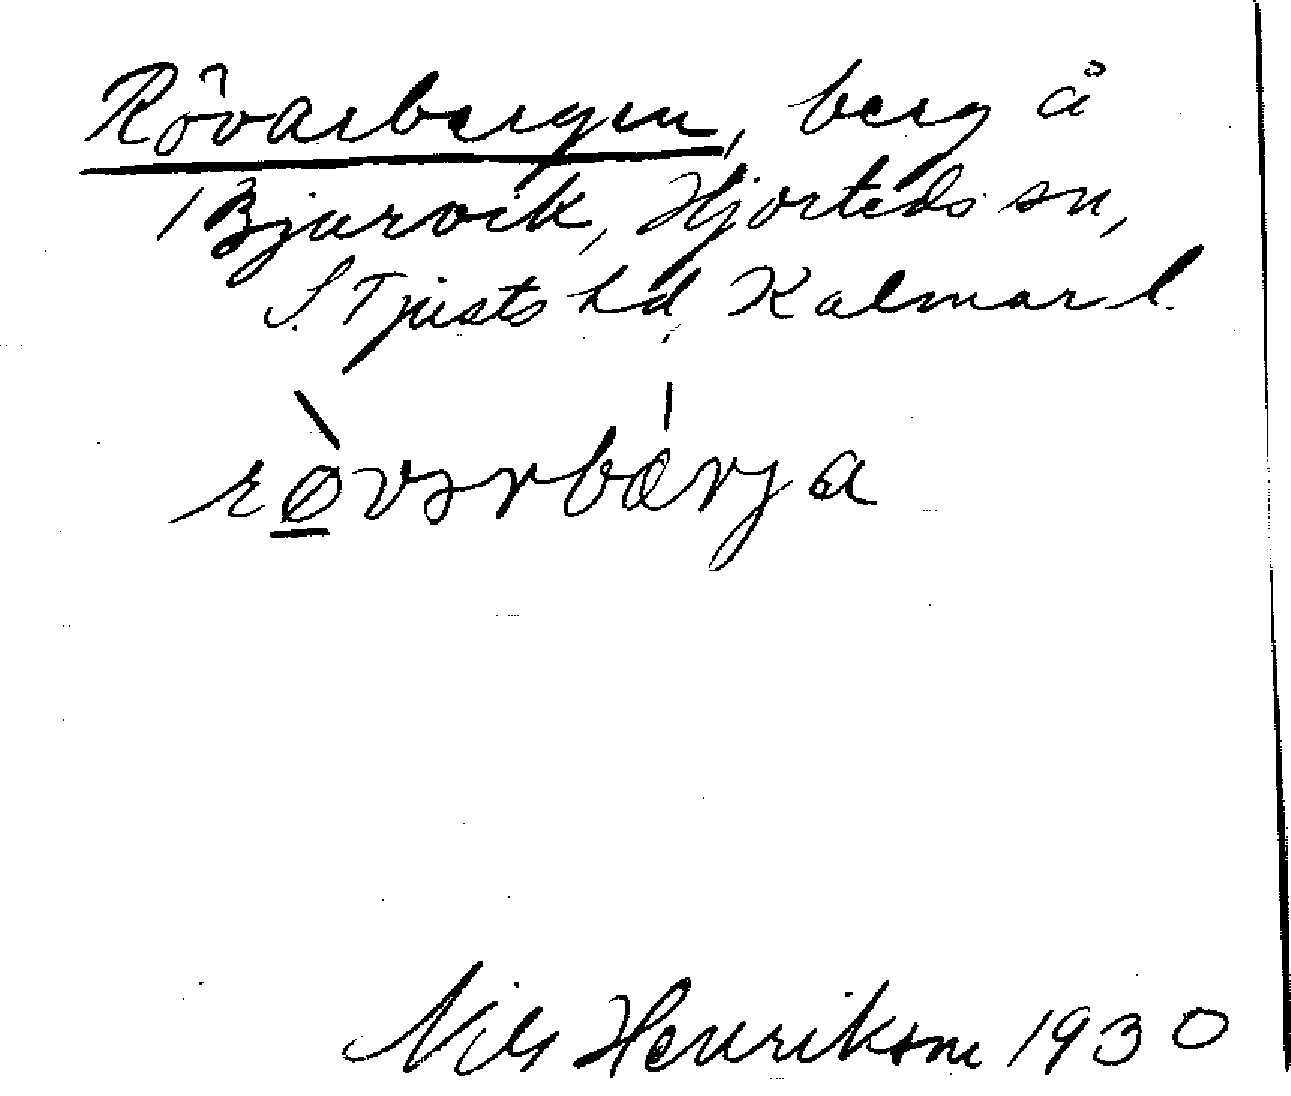 Rövarbergen, berg å
Bjurvik, Hjorteds sn,
S. Tjusts hd, Kalmar l.
rø̱̀vərbǽrja
Nils Henrikson 1930